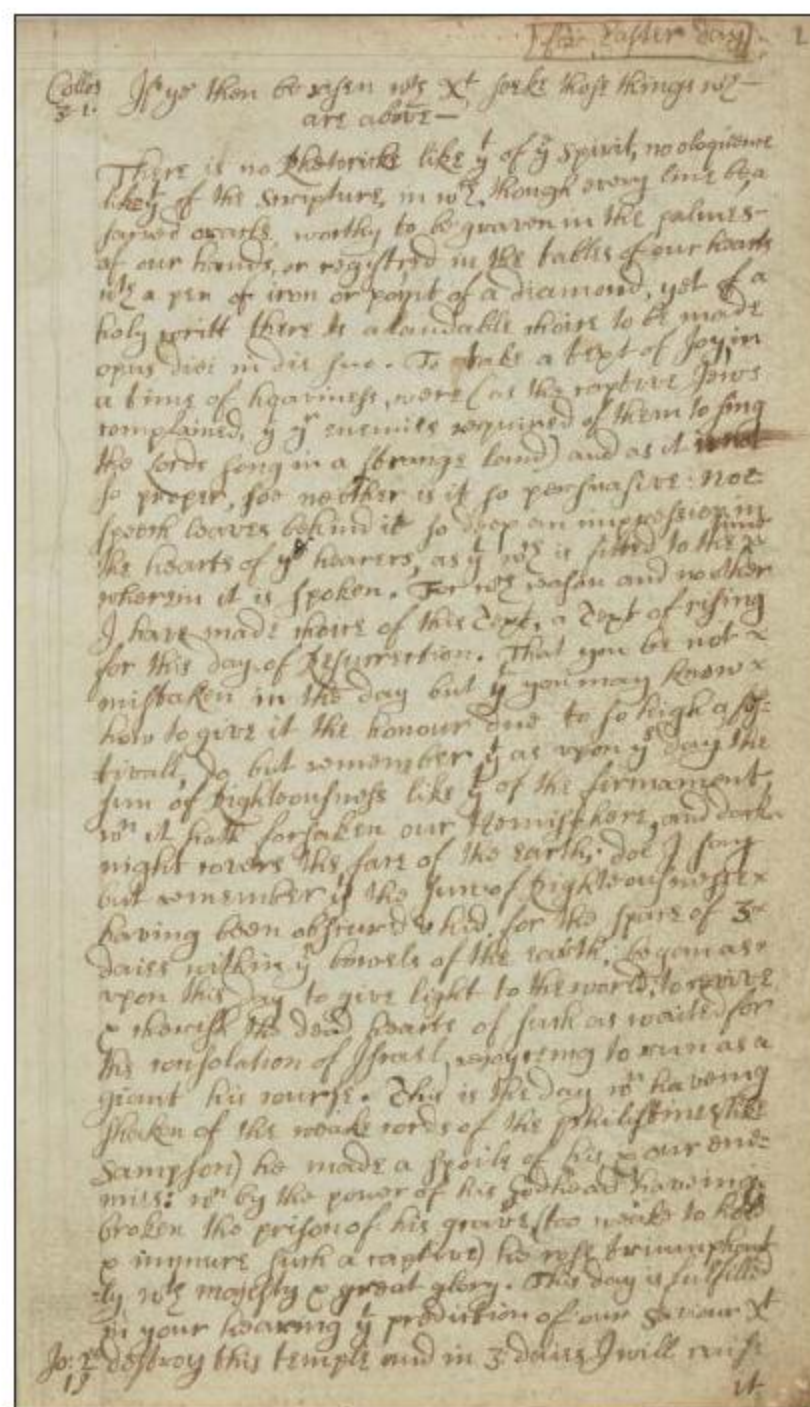 for Easter day 1
Collos
3. 1.
If ye then be risen wth Xt seeke those things wch
are above—
There is no Rhetoricke like yt of ye Spirit, no eloquence
like yt of the Scripture, in wch, though every line be, a
sacred oracle, worthy to be graven in the palmes
of our hands, or registred in the tables of our hearts
wth a pen of iron or poynt of a diamond, yet of a
holy writt there is a laudable choice to be made
opus diei in die suo. To take a text of Joy in
a time of heaviness, were (as the captive Jews
complained, yt yr enemies required of them to sing
the Lords song in a strange land) and as it is not
so proper, soe neither is it so perswasive: Noe
speech leaves behind it so deep an impression in
the hearts of ye hearers, as yt wch is fitted to the time
wherein it is spoken. For wch reason and no other
I have made choice of this Text, a Text of rising
for this day of Resurrection. That you be not
mistaken in the day but yt you may know
how to give it the honour due to so high a fes=
tivall, do but remember yt as upon ys day the
Sun of Righteousness like yt of the firmament,
wn it hath forsaken our Hemisphere, and dark
night covers the face of the earth, doe I say
but remember yt the Sun of Righteousnesse
having been obscured & hid for the space of 3
daies within ye bowels of the earth, began as
upon this day to give light to the world, to revive
& cherish the dead hearts of such as waited for
the consolation of Israel, rejoyceing to run as a
giant his course. This is the day wn haveing
shaken of the weake cords of the Philistines (like
Sampson) he made a spoile of his & our ene=
mies: wn by the power of his Godhead haveing
broken the prison of his grave (too weake to hold
& immure such a captive) he rose triumphant
=ly wth majesty & great glory. This day is fulfilled
in your hearing ye prediction of our Saviour Xt
Jo: 2d
19
destroy this temple and in 3 daies I will raise
it